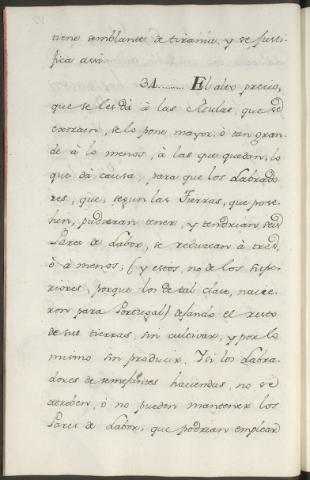 tiene semblante de tirania, y se justi-
fica assi.
31......... El alto precio,
que se les dà à las Mulas, que se
extraen, se lo pone mayor, ò tan gran-
de à lo menos, à las que quedan, lo
que dà causa, para que los Labrado-
res, que, segun las Tierras, que pose-
hen, pudieran tener, y tendrian, seis
Pares de Labor, se reduzcan à tres,
ò à menos; (y estos, no de los Supe-
riores, porque los de tal clase, nacie-
ron para Portugal) dejando el resto
de sus tierras, sin cultivar, y por lo
mismo sin producir. Y si los Labra-
dores de semejantes haciendas, no se
atreben, ò no pueden mantener los
Pares de Labor, que podrian emplear